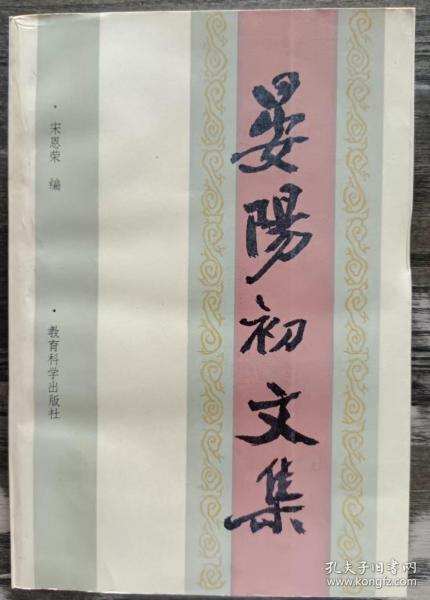 晏陽初文集
· 宋恩荣 编
· 教育科学出版社
孔夫子旧书网
www.kongfz.com